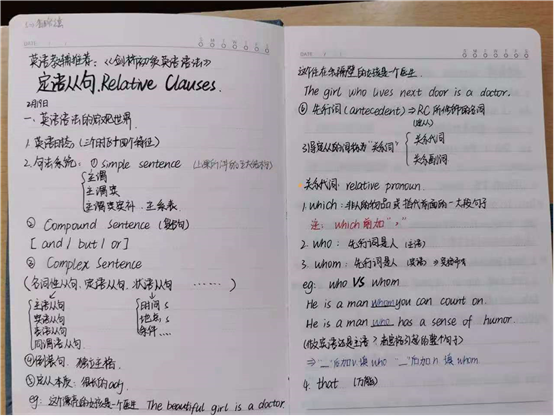 英语教辅推荐：《剑桥初级英语语法》
定语从句. Relative Clauses.
2月19日
一. 英语语法的宏观世界.
1. 英语时态(三个时态+四个特征)
2. 句法系统: ① simple sentence
主谓
主谓宾
主谓宾宾补. 主系表
② Compound sentence
[and / but / or]
③ Complex Sentence
(名词性从句, 定语从句, 状语从句 ……)
主语从句
宾语从句
表语从句
同谓语从句
时间 s
地点 s
条件 ....
④ 倒装句. 独立主格.
⑤ 定从本质: 很长的adj.
eg: 这个漂亮的女孩是一个医生 The beautiful girl is a doctor.
DATE
这个住在隔壁的女孩是一个医生.
The girl who lives next door is a doctor.
⑥ 先行词 (antecedent) ⇒ RC 所修饰的名词
(定从)
3) 引导定从的词称为“关系词”
关系代词
关系副词
关系代词: relative pronoun.
1. which: 非人的物品或指代前面的一大段句子
注: which 前加 “,”
2. who: 先行词是人 (主语)
3. whom: 先行词是人 (宾语)
eg: who VS whom
He is a man whom you can count on.
He is a man who has a sense of humor.
⇒ “__”后加v 填 who “__”后加n 填 whom.
4. that (万能)